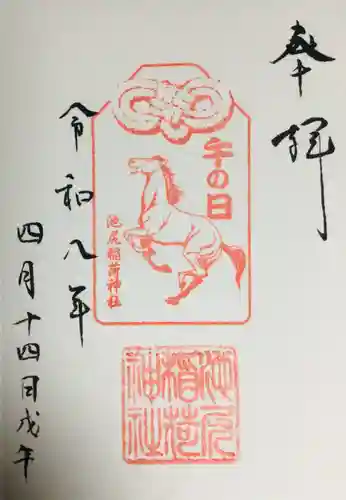 奉拝
午の日
池尻稲荷神社
令和八年
四月十四日戊午
池尻稲荷神社